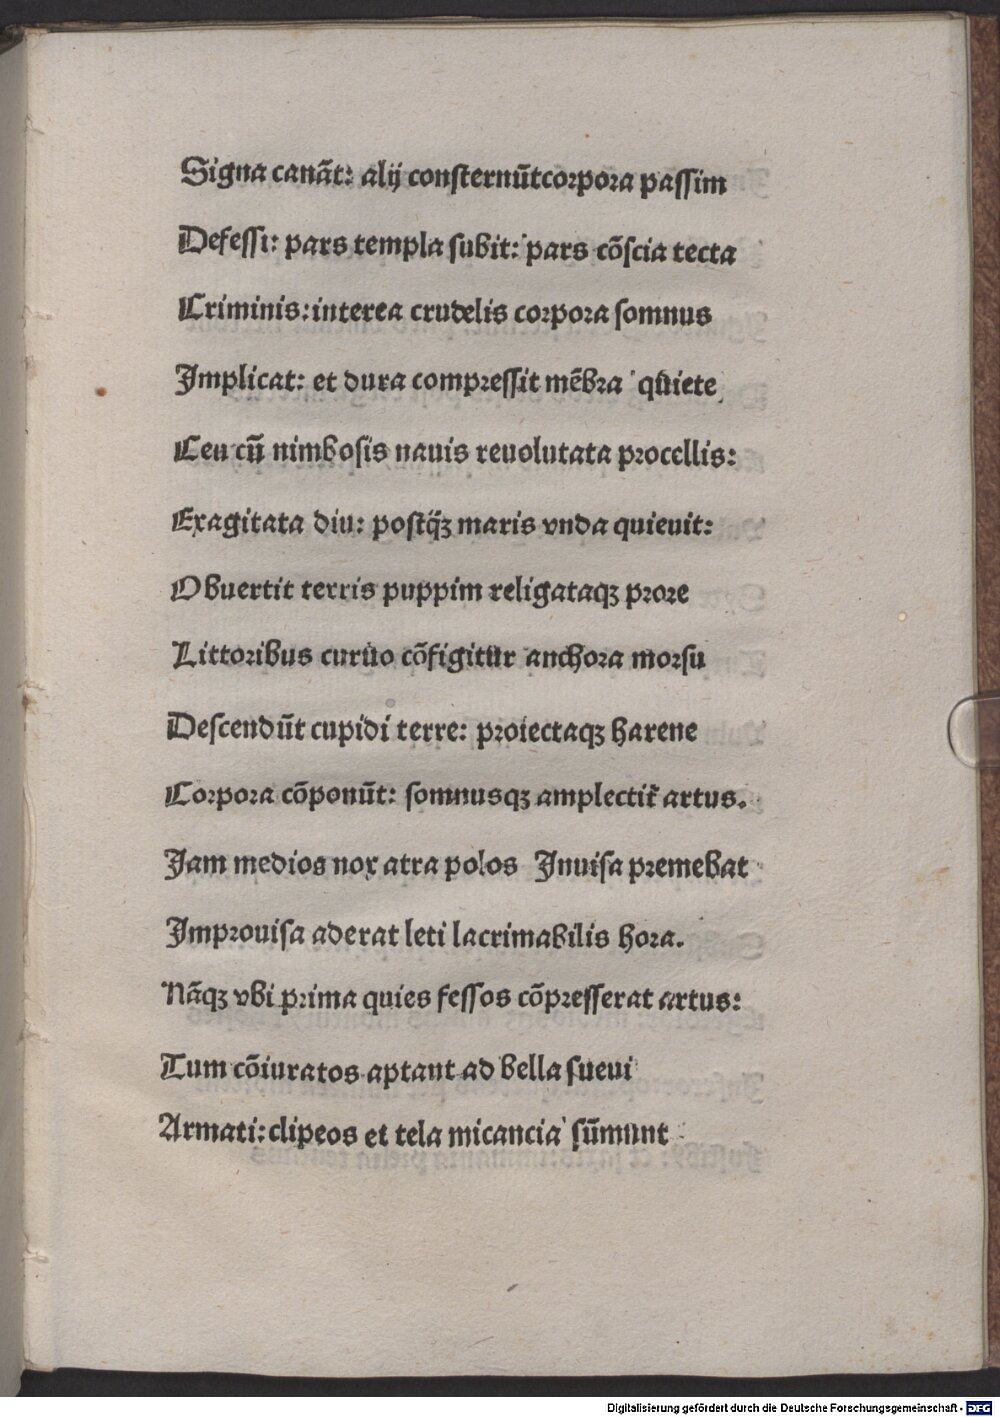 Signa canãt: alij consternũtcorpora passim
Defessi: pars templa subit: pars cõscia tecta
Criminis: interea crudelis corpora somnus
Implicat: et dura compressit mẽbra quiete
Ceu cũ nimbosis nauis reuolutata procellis:
Exagitata diu: postq̃ꝫ maris vnda quieuit:
Obuertit terris puppim religataqꝫ prore
Littoribus curuo cõfigitur anchora morsu
Descendũt cupidi terre: proiectaqꝫ harene
Corpora cõponũt: somnusqꝫ amplectit᷑ artus.
Jam medios nox atra polos Inuisa premebat
Improuisa aderat leti lacrimabilis hora.
Nãqꝫ vbi prima quies fessos cõpresserat artus:
Tum cõiuratos aptant ad bella sueui
Armati: clipeos et tela micancia sũmunt
Digitalisierung gefördert durch die Deutsche Forschungsgemeinschaft - DFG